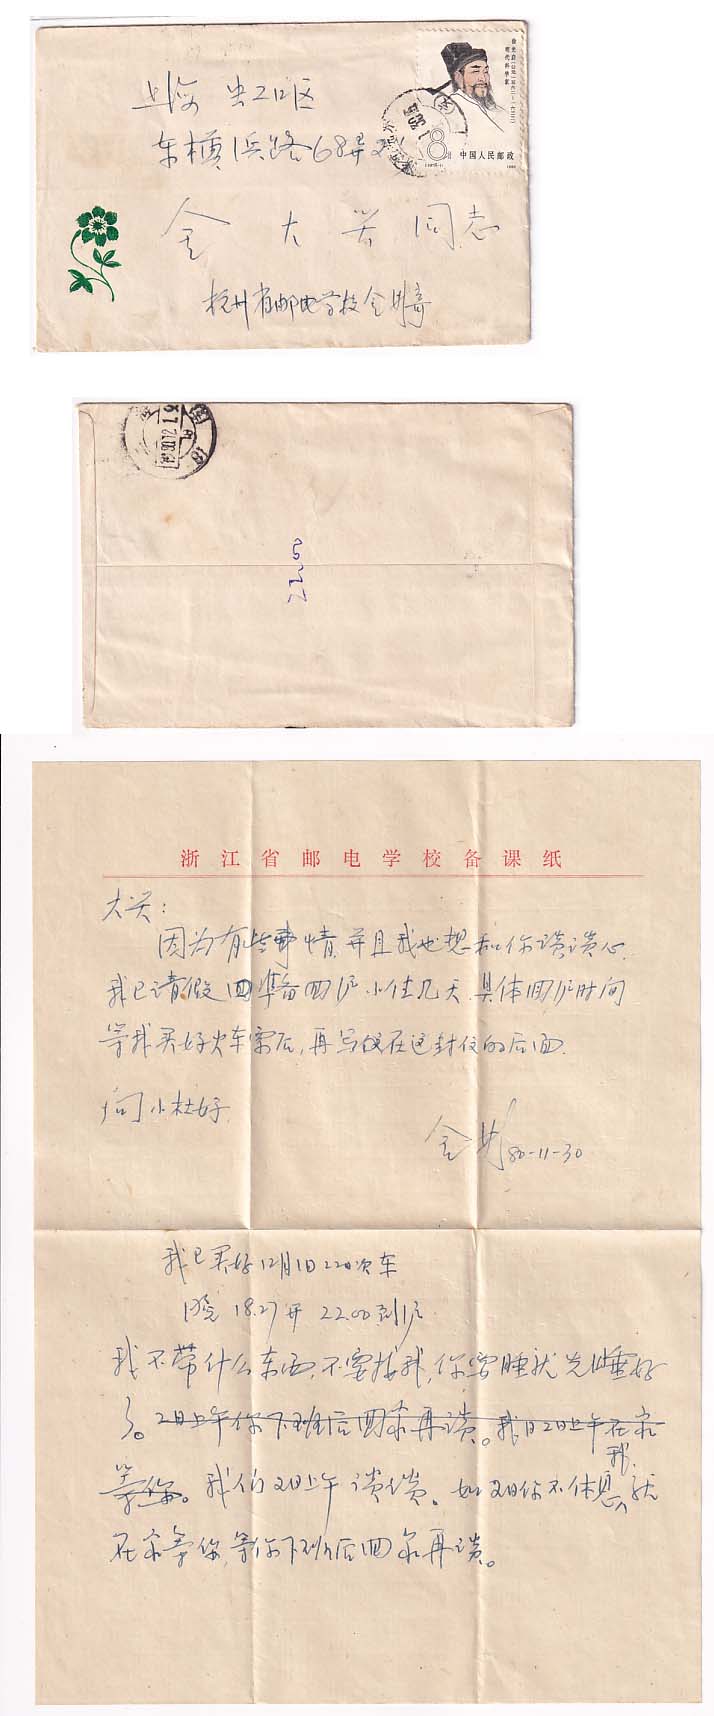 上海 虹口区
东横浜路68弄
金大 同志
杭州省邮电学校金
徐光启(公元一五六二—一六三三)
明代科学家
8分 中国人民邮政
1980
22.00
浙江省邮电学校备课纸
大关:
因为有些事情,并且我也想和你谈谈心.
我已请假 准备回沪小住几天.具体回沪时间
等我买好火车票后,再写 在这封信的后面.
问小杜好.
金 80-11-30
我已买好12月1日 次车
18.27开 22.00到沪
我不带什么东西,不要接我,你要睡就先睡好
了。2日上午你下班后回来再谈。我 2日上午在家
等你。我们2日上午谈谈。如2日你不休息,我就
在家等你,等你下班后回家再谈。